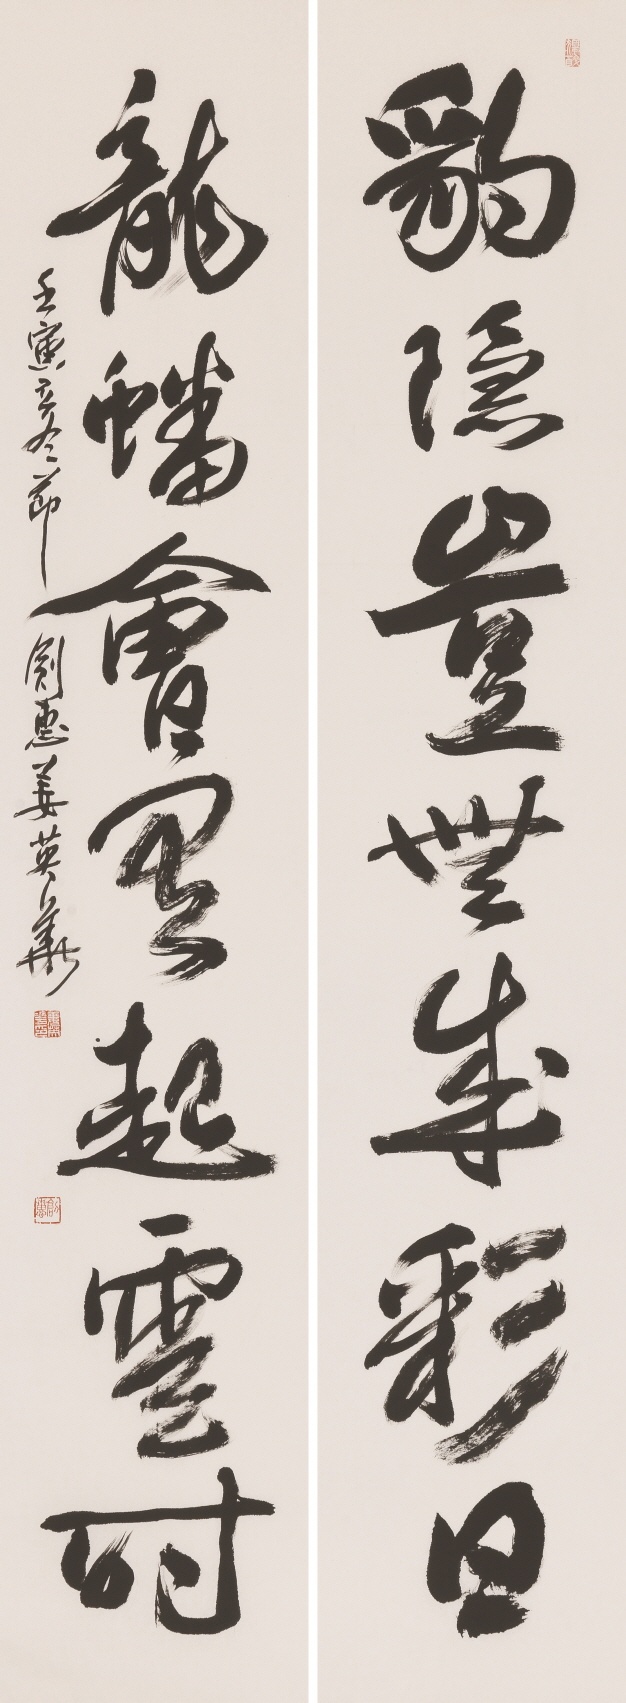 豹隱豈無成彩日
龍蟠會有起雲時
壬寅立冬節
創惠姜英華